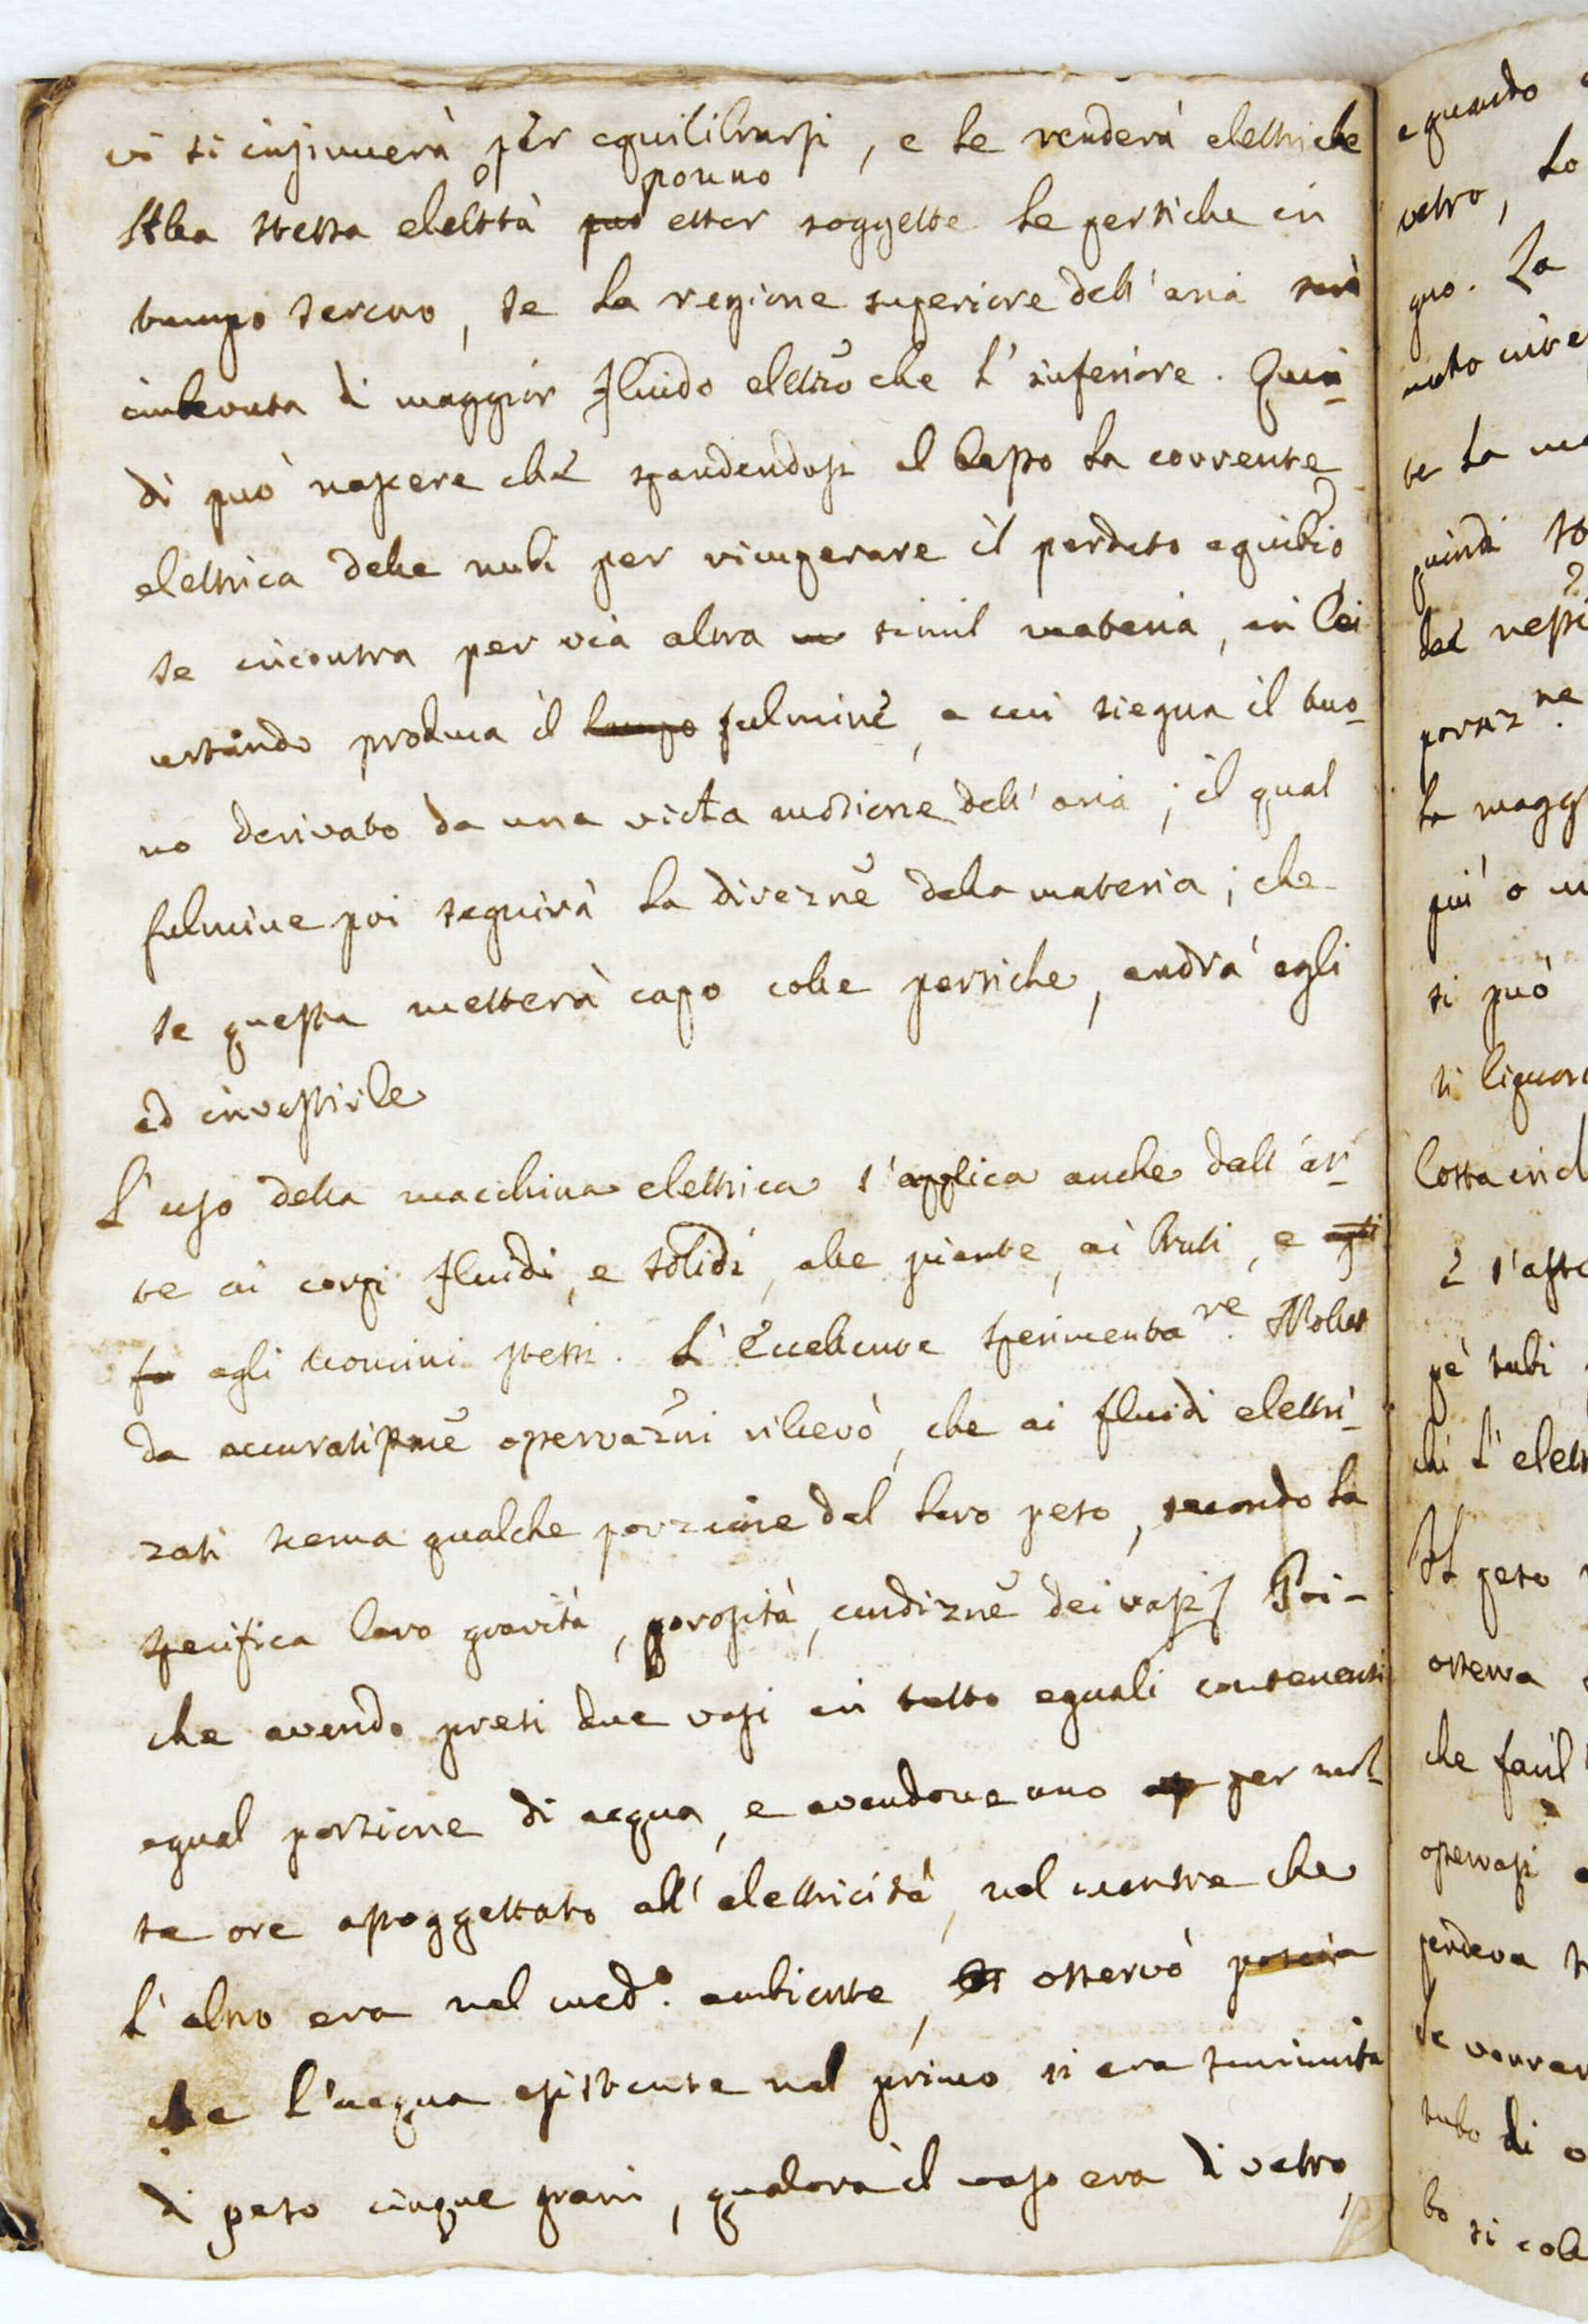 vi si insinuerà per equilibrarsi, e le renderà elettriche
Alla stessa elettà può ponno esser soggette le pertiche in
tempo sereno, se la regione superiore dell'aria sarà
imbevuta di maggior fluido elettrō che l'inferiore. Quin-
di può nascere che spandendosi al basso la corrente
elettrica delle nubi per ricuperare il perduto equibrio
se incontra per via altra simil materia, in lei
urtando produca il lampo fulmine, a cui siegua il tuo-
no derivato da una victa mozione dell'aria; il qual
fulmine poi seguirà la direznē della materia; che
se questa metterà capo colle pertiche, andrà egli
ad investirle
L'uso della macchina elettrica s'applica anche dall'ar-
te ai corpi fluidi, e solidi, alle piante, ai bruti, e agli
fu agli uomini stessi. L'Eccellente sperimentare. Nollet
da accuratissme osservazni rilievò, che ai fluidi elettri-
zati scema qualche porzione del loro peso, secondo la
specifica loro gravità, porosità, condiznē dei vasi Poi-
che avendo presi due vasi in tutto eguali contenenti
egual porzione di acqua, e avendone uno per set-
te ore assoggettato all'elettricità, nel mentre che
l'altro era nel med.o ambiente, osservò poscia
che l'acqua esistente nel primo si era sminuita
di peso cinque grani, qualora il vaso era di vetro,
e quando
vetro, lo
gno. La
te la
quindi
del
porziz.ne
la magg
più o
si può
si liquor
è s'
pè tubi
chi l'elett
Il peso
osserva
che facil
osservasi
perdeva
se
tubo di o
bo si coll